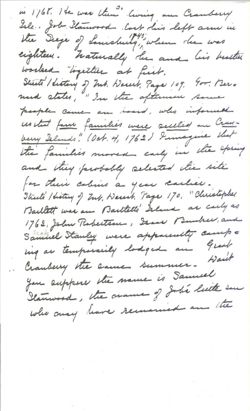 in 1768. He was then living on Cranberry
Isle. Job Stanwood lost his left arm in
the Siege of Louisburg, when he was
eighteen. Naturally he and his brother
worked together at first.
Street's History of Mt. Desert, Page 109. Gov. Ber-
nard states, "In the afternoon some
people came on board, who informed
us that four families were settled on Cran-
berry Island". (Oct. 4, 1762) I imagine that
the families moved early in the spring
and they probably selected the site
for their cabins a year earlier.
Street's History of Mt. Desert, Page 170, "Christopher
Bartlett was on Bartlett's Island as early as
1762, John Robertson, Isaac Bunker, and
Samuel Stanley were apparently camp-
ing or temporarily lodged on Great
Cranberry the same summer. Don't
you suppose the name is Samuel
Stanwood, the name of Job's little son
who may have remained on the